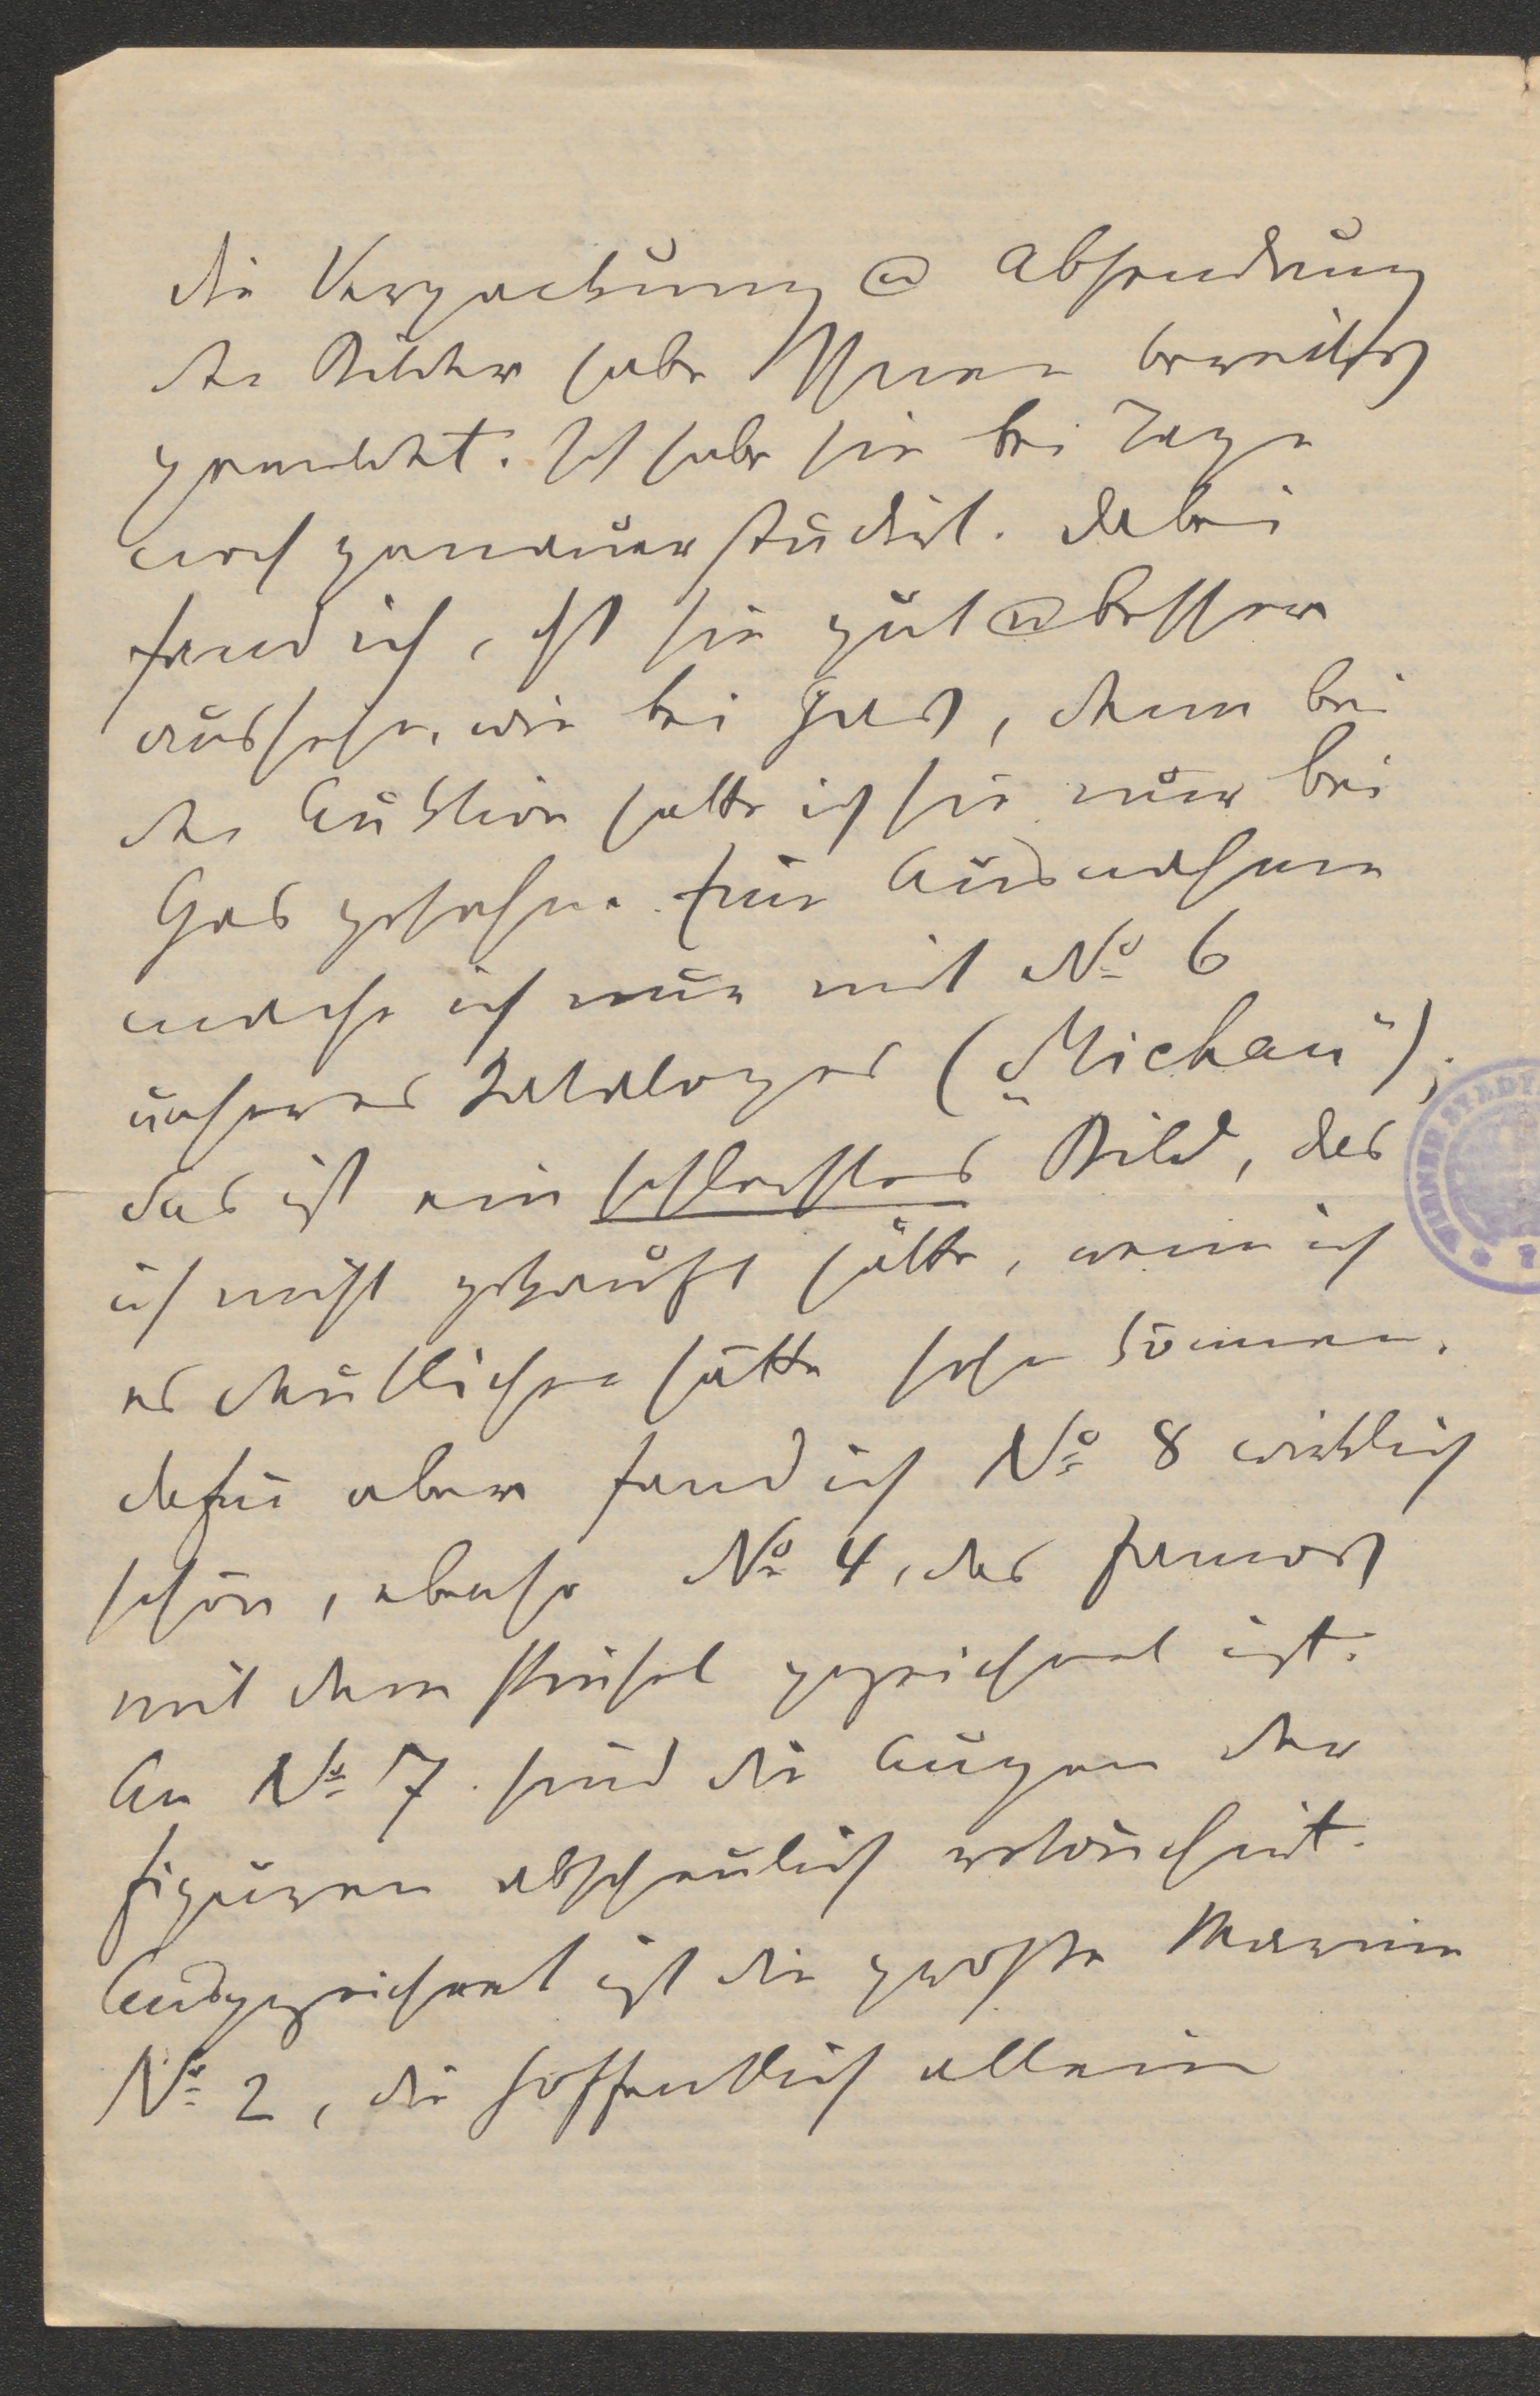 die Verpackung & Absendung
der Bilder habe Ihnen bereits
gemeldet. Ich habe sie bei Tage
noch genauer studirt. Dabei
fand ich, daß sie gut & besser
aussehen, wie bei Gas, denn bei
der Auktion hatte ich sie nur bei
Gas gesehen. Eine Ausnahme
mache ich nur mit No 6
unseres Kataloges („Michau“);
das ist ein schlechtes Bild, das
ich nicht gekauft hätte, wenn ich
es deutlicher hätte sehen können.
Dafür aber fand ich No 8 wirklich
schön, ebenso No 4, das famos
mit dem Pinsel gezeichnet ist.
An No 7 sind die Augen der
Figuren abscheulich retouchirt.
Ausgezeichnet ist die große Marine
No 2, die hoffentlich allein